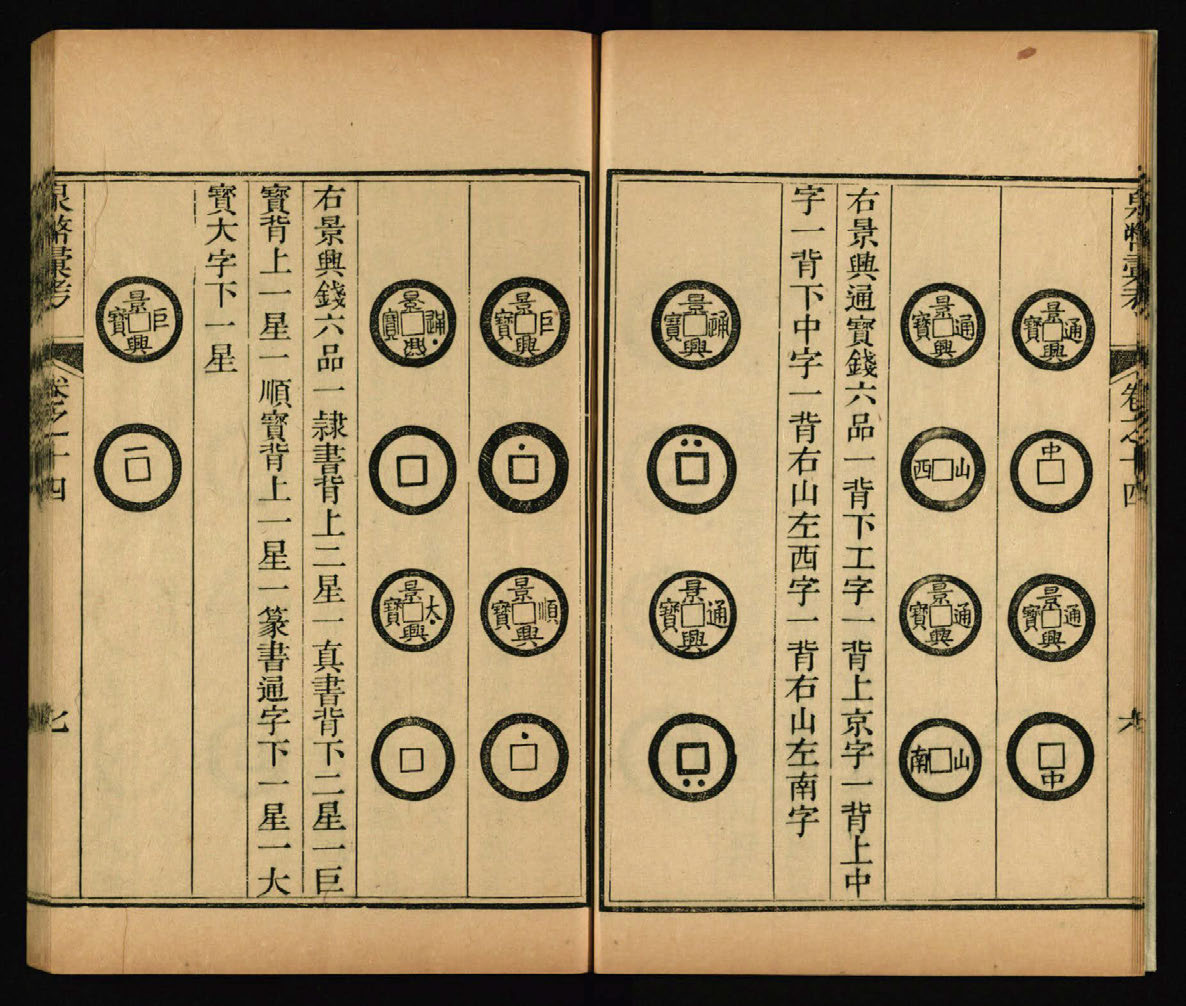 泉幣彙考 卷之十四 六
景興通寶
中
景興通寶
中
景興通寶
山西
景興通寶
山南
右景興通寶錢六品一背下工字一背上京字一背上中
字一背下中字一背右山左西字一背右山左南字
景興通寶
景興通寶
景興巨寶
景興順寶
景興通寶
景興太寶
右景興錢六品一隷書背上二星一真書背下二星一巨
寶背上一星一順寶背上一星一篆書通字下一星一大
寶大字下一星
景興巨寶
一
泉幣彙考 卷之十四 七